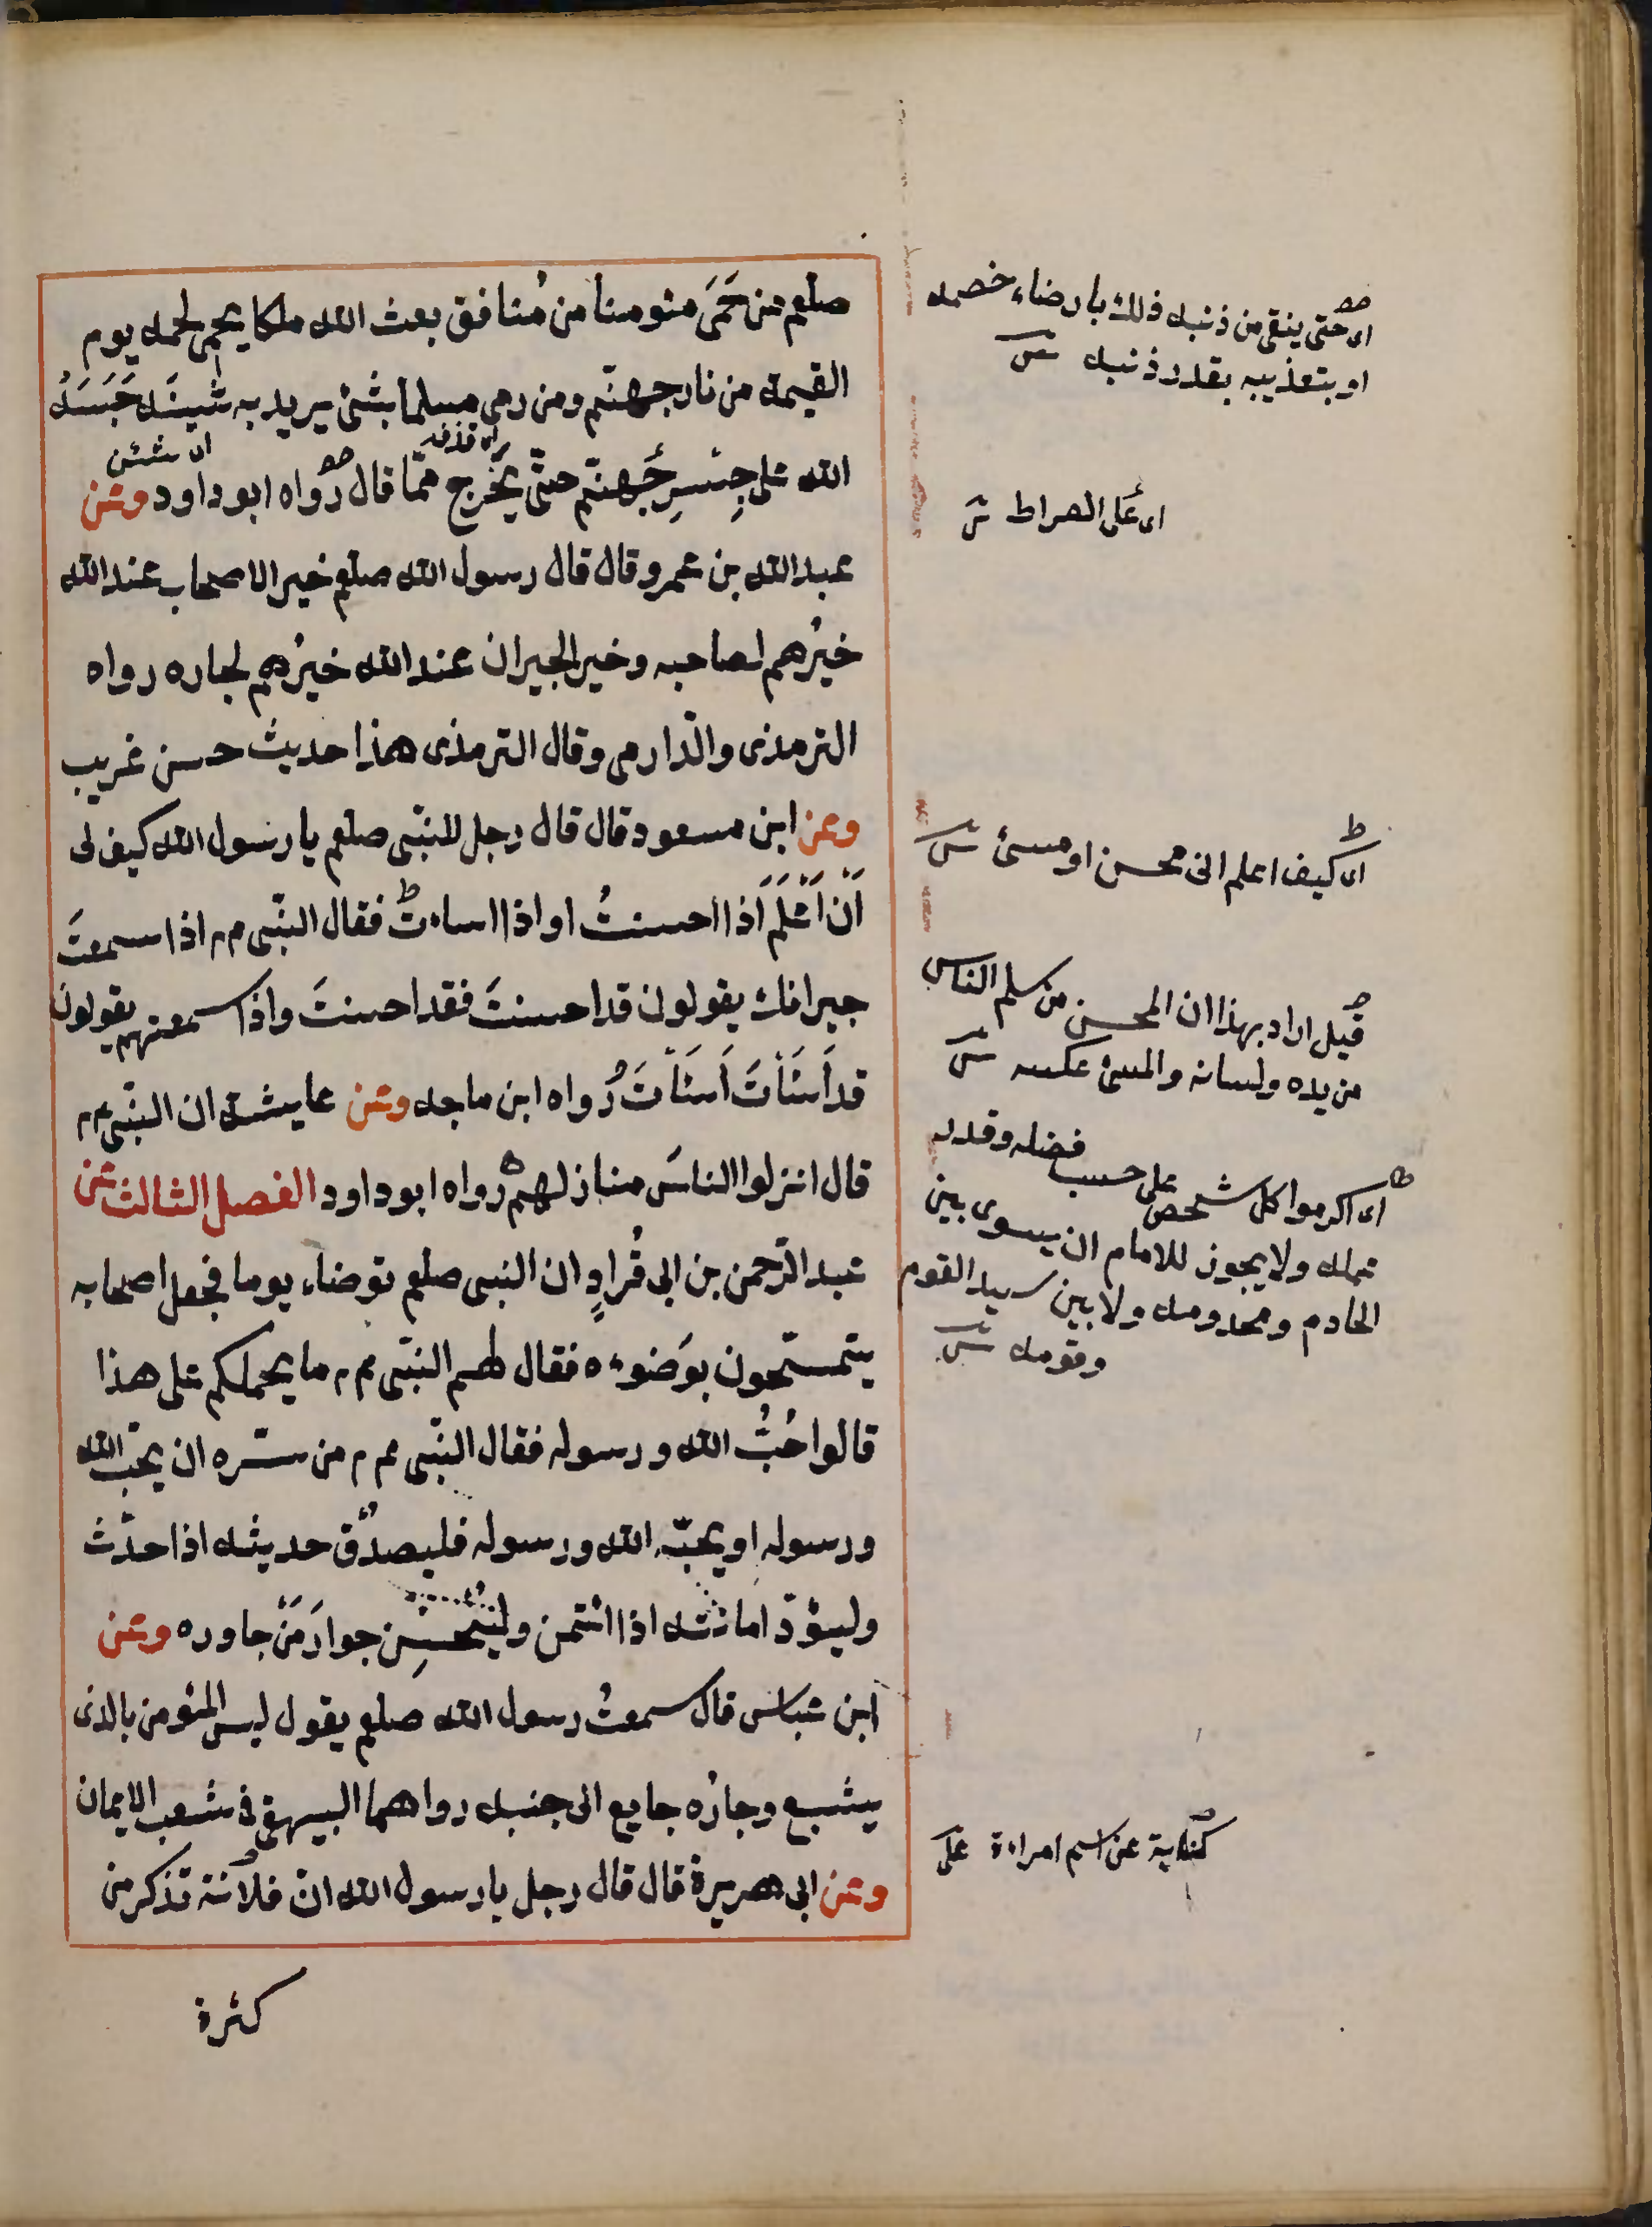 صلعم من حَمَى مئومنا من مُنافق بعث الله ملكا يحمى لحمه يوم
القيمة من نار جهنّم ومن رمى مسلما بشئ يريد به شينَه حَبَسَهُ
اى قذفه
الله على جِسْرِ جَهنّم حتّى يَخْرج ممّا قال رواه ابو داود وعن
عبد الله بن عمرو قال قال رسول الله صلعم خير الاصحاب عند الله
خيرُهم لصاحبه وخير الجيران عند الله خيرُهم لجاره رواه
الترمذى والدّارمى وقال الترمذى هذا حديث حسن غريب
وعن ابن مسعود قال قال رجل للنبّى صلعم يا رسول الله كيف لى
اَنْ اَعْلَمَ اذا احسنتُ او اذا اساءتُ فقال النبّى عم اذا سمعتَ
جيرانك يقولون قد احسنتَ فقد احسنتَ واذا سمعتهم يقولون
قد أَسَأْتَ فقد أَسَأْتَ رواه ابن ماجه وعن عايشة ان النبّى عم
قال انزلوا الناسَ منازلهم رواه ابو داود الفصل الثالث عن
عبد الرّحمن بن ابى قُرادٍ ان النبى صلعم توضاء يوما فجعل اصحابه
يتمسّحون بوَضوءه فقال لهم النبّى عم ما يحملكم على هذا
قالوا حُبُّ الله ورسوله فقال النبّى عم من سرّه ان يحبّ الله
ورسوله او يحبّه الله ورسوله فليصدُق حديثه اذا حدّث
وليؤدّ امانته اذا ائتمن وليُحْسِن جوارَ مَنْ جاوره وعن
ابن عباس قال سمعتُ رسول الله صلعم يقول ليس المئومن بالذى
يشبع وجارُه جايع الى جنبه رواهما البيهقى فى شعب الايمان
وعن ابى هريرة قال قال رجل يا رسول الله انّ فلانة تذكر من
كثرة
اى حتى ينقى من ذنبه ذلك بارضاء خصمه
او بتعذيبه بقدر ذنبه
اى على الصراط ش
اى كيف اعلم انى محسن او مسئ
قيل اراد بهذا ان المحسن من سلم الناس
من يده ولسانه والمسئ عكسه
اى اكرموا كل شخص على حسب فضله وقدر
عمله ولا يجوز للامام ان يسوى بين
الخادم ومخدومه ولا بين سيد القوم
وقومه
كناية عن اسم امراءة